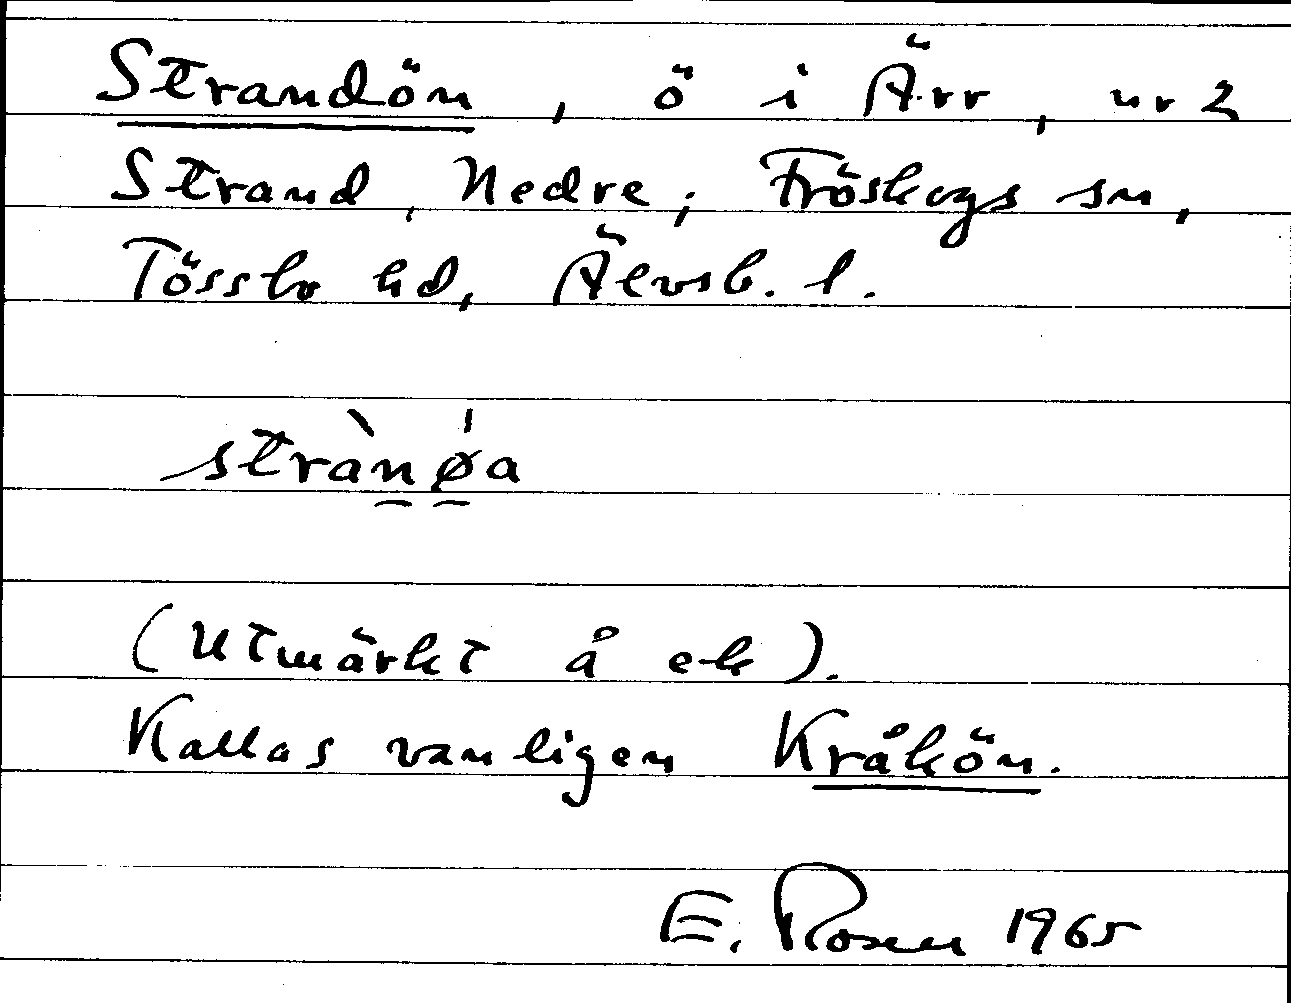 Strandön, ö i Ärr, nr 2
Strand, Nedre; Fröskogs sn,
Tössbo hd, Älvsb. l.
strànø̍a
(Utmärkt å ek).
Kallas vanligen Kråkön.
E. Rosen 1965